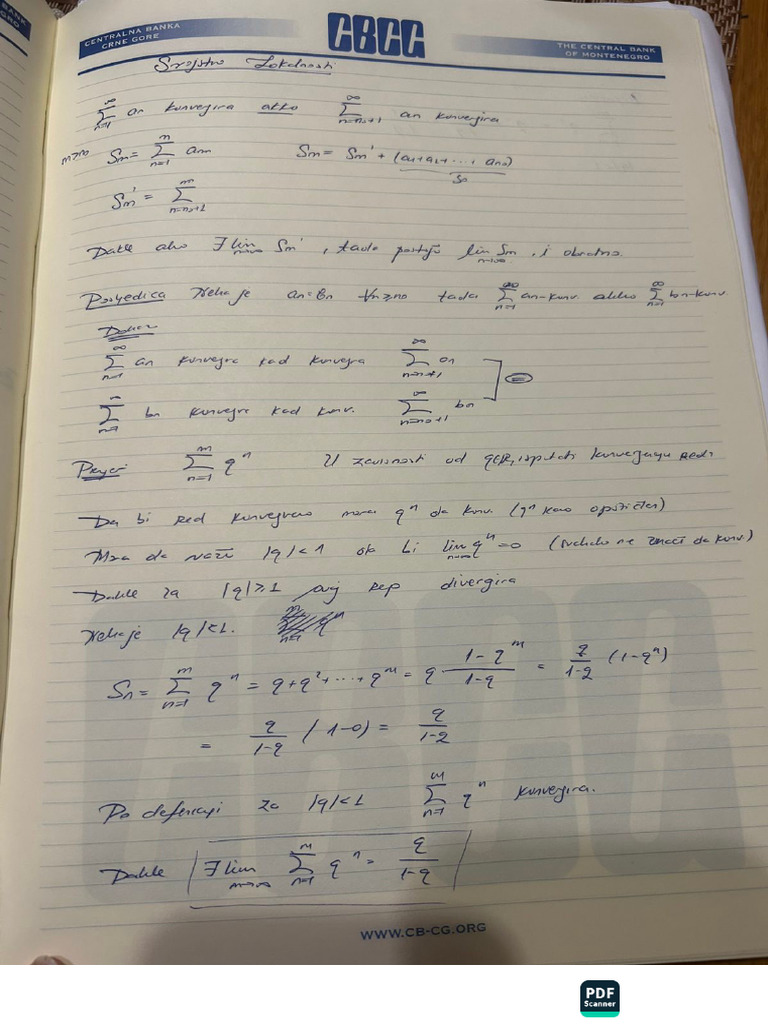 BANK
RO
CENTRALNA BANKA
CRNE GORE
CBCG
THE CENTRAL BANK
OF MONTENEGRO
Svojstvo Lokalnosti
∑_{n=1}^{∞} an konvergira akko ∑_{n=n0+1}^{∞} an konvergira
m>n0 Sm = ∑_{n=1}^{m} an Sm = Sm' + (a1+a2+...+an0)
S0
Sm' = ∑_{n=n0+1}^{m}
Dakle ako ∃ lim_{m→∞} Sm', tada postoji lim_{m→∞} Sm, i obratno.
Posljedica Neka je an=bn ∀n≥n0 tada ∑_{n=1}^{∞} an-konv. akko ∑_{n=1}^{∞} bn-konv
Dokaz
∑_{n=1}^{∞} an konvergira kad konvergira ∑_{n=n0+1}^{∞} an
=
∑_{n=1}^{∞} bn konvergira kad konv. ∑_{n=n0+1}^{∞} bn
Primjer ∑_{n=1}^{m} q^n U zavisnosti od q∈R, ispitati konvergenciju reda
Da bi red konvergirao mora q^n da konv. (q^n kao opšti član)
Mora da važi |q|<1 da bi lim_{n→∞} q^n=0 (ne znači da konv.)
Dakle za |q|≥1 ovaj red divergira
Neka je |q|<1.
Sn = ∑_{n=1}^{m} q^n = q+q^2+...+q^m = q (1-q^m)/(1-q) = q/(1-q) (1-q^n)
= q/(1-q) (1-0) = q/(1-q)
Po definiciji za |q|<1 ∑_{n=1}^{m} q^n konvergira.
Dakle ∃ lim_{m→∞} ∑_{n=1}^{m} q^n = q/(1-q)
WWW.CB-CG.ORG
PDF
Scanner